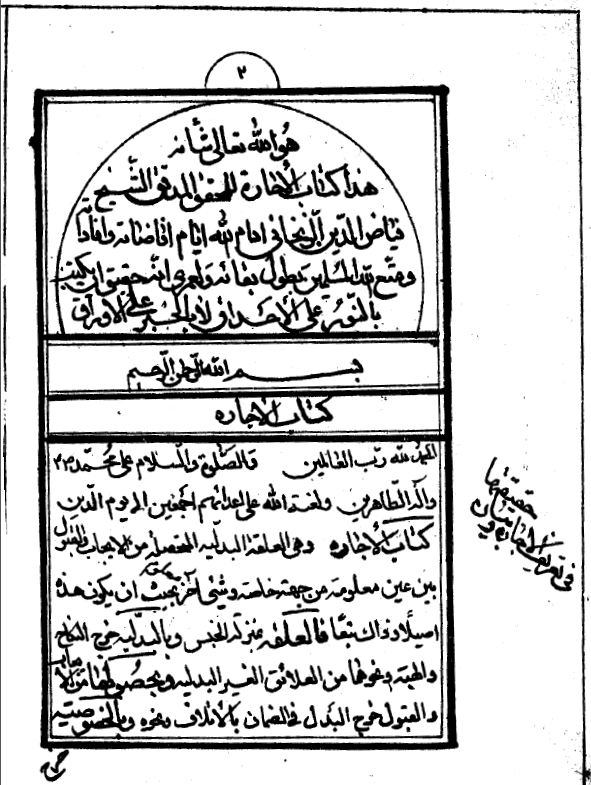 ٢
هو الله تعالى شأنه
هذا كتاب الإجارة للمحقق المدقق الشيخ
فياض الدين الزنجاني ادام لله ايام افاضاته وافاداته
ومتع لله المسلمين بطول بقائه ولعمري انه حقيق ان يكتب
بالنور على الأحداق لا بالحبر على الاوراق
بسم الله الرحمن الرحيم
كتاب الاجاره
الحمد لله رب العالمين والصلوة والسلام على محمد
وآله الطاهرين ولعنة الله على اعدائهم اجمعين الى يوم الدين
كتاب الاجاره وهي العلقة البدلية المتحصلة من الايجاب والقبول
بين عين معلومة من جهة خاصة وشئ آخر بحيث ان يكون هذه
اصيلا وذاك تبعا فالعلقه بمنزلة الجنس وبالبدلية خرج النكاح
والهبة ونحوها من العلائق الغير البدليه وبحصولها من الايجاب
والقبول خرج البدل في الضمان بالاتلاف ونحوه وبالخصوصية
خرج
في تعريف الاجارة وبيان
حقيقتها